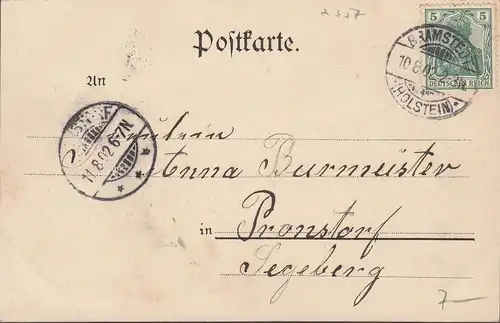 2557
Postkarte.
5 5
DEUTSCHES REICH
BRAMSTEDT
10.8.02
*(HOLSTEIN)*
An
11.8.02.6-7N
Fräulein
Anna Burmeister
in Pronstorf
Segeberg
7-